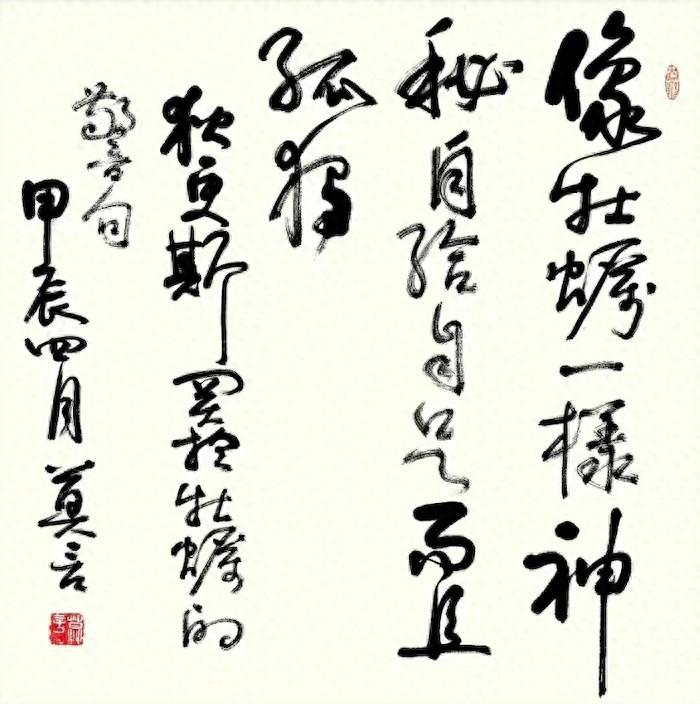 像牡蠣一樣神
秘自給自足而且
孤獨
狄更斯關於牡蠣的
警句
甲辰四月 莫言